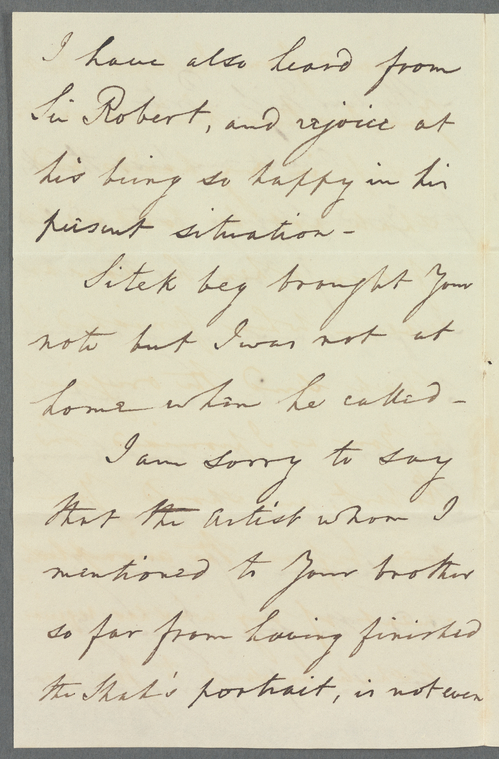 I have also heard from
Sir Robert, and rejoice at
his being so happy in his
present situation -
Sitek beg brought your
note but I was not at
home when he called -
I am sorry to say
that the artist whom I
mentioned to your brother
so far from having finished
the Shah's portrait, is not even